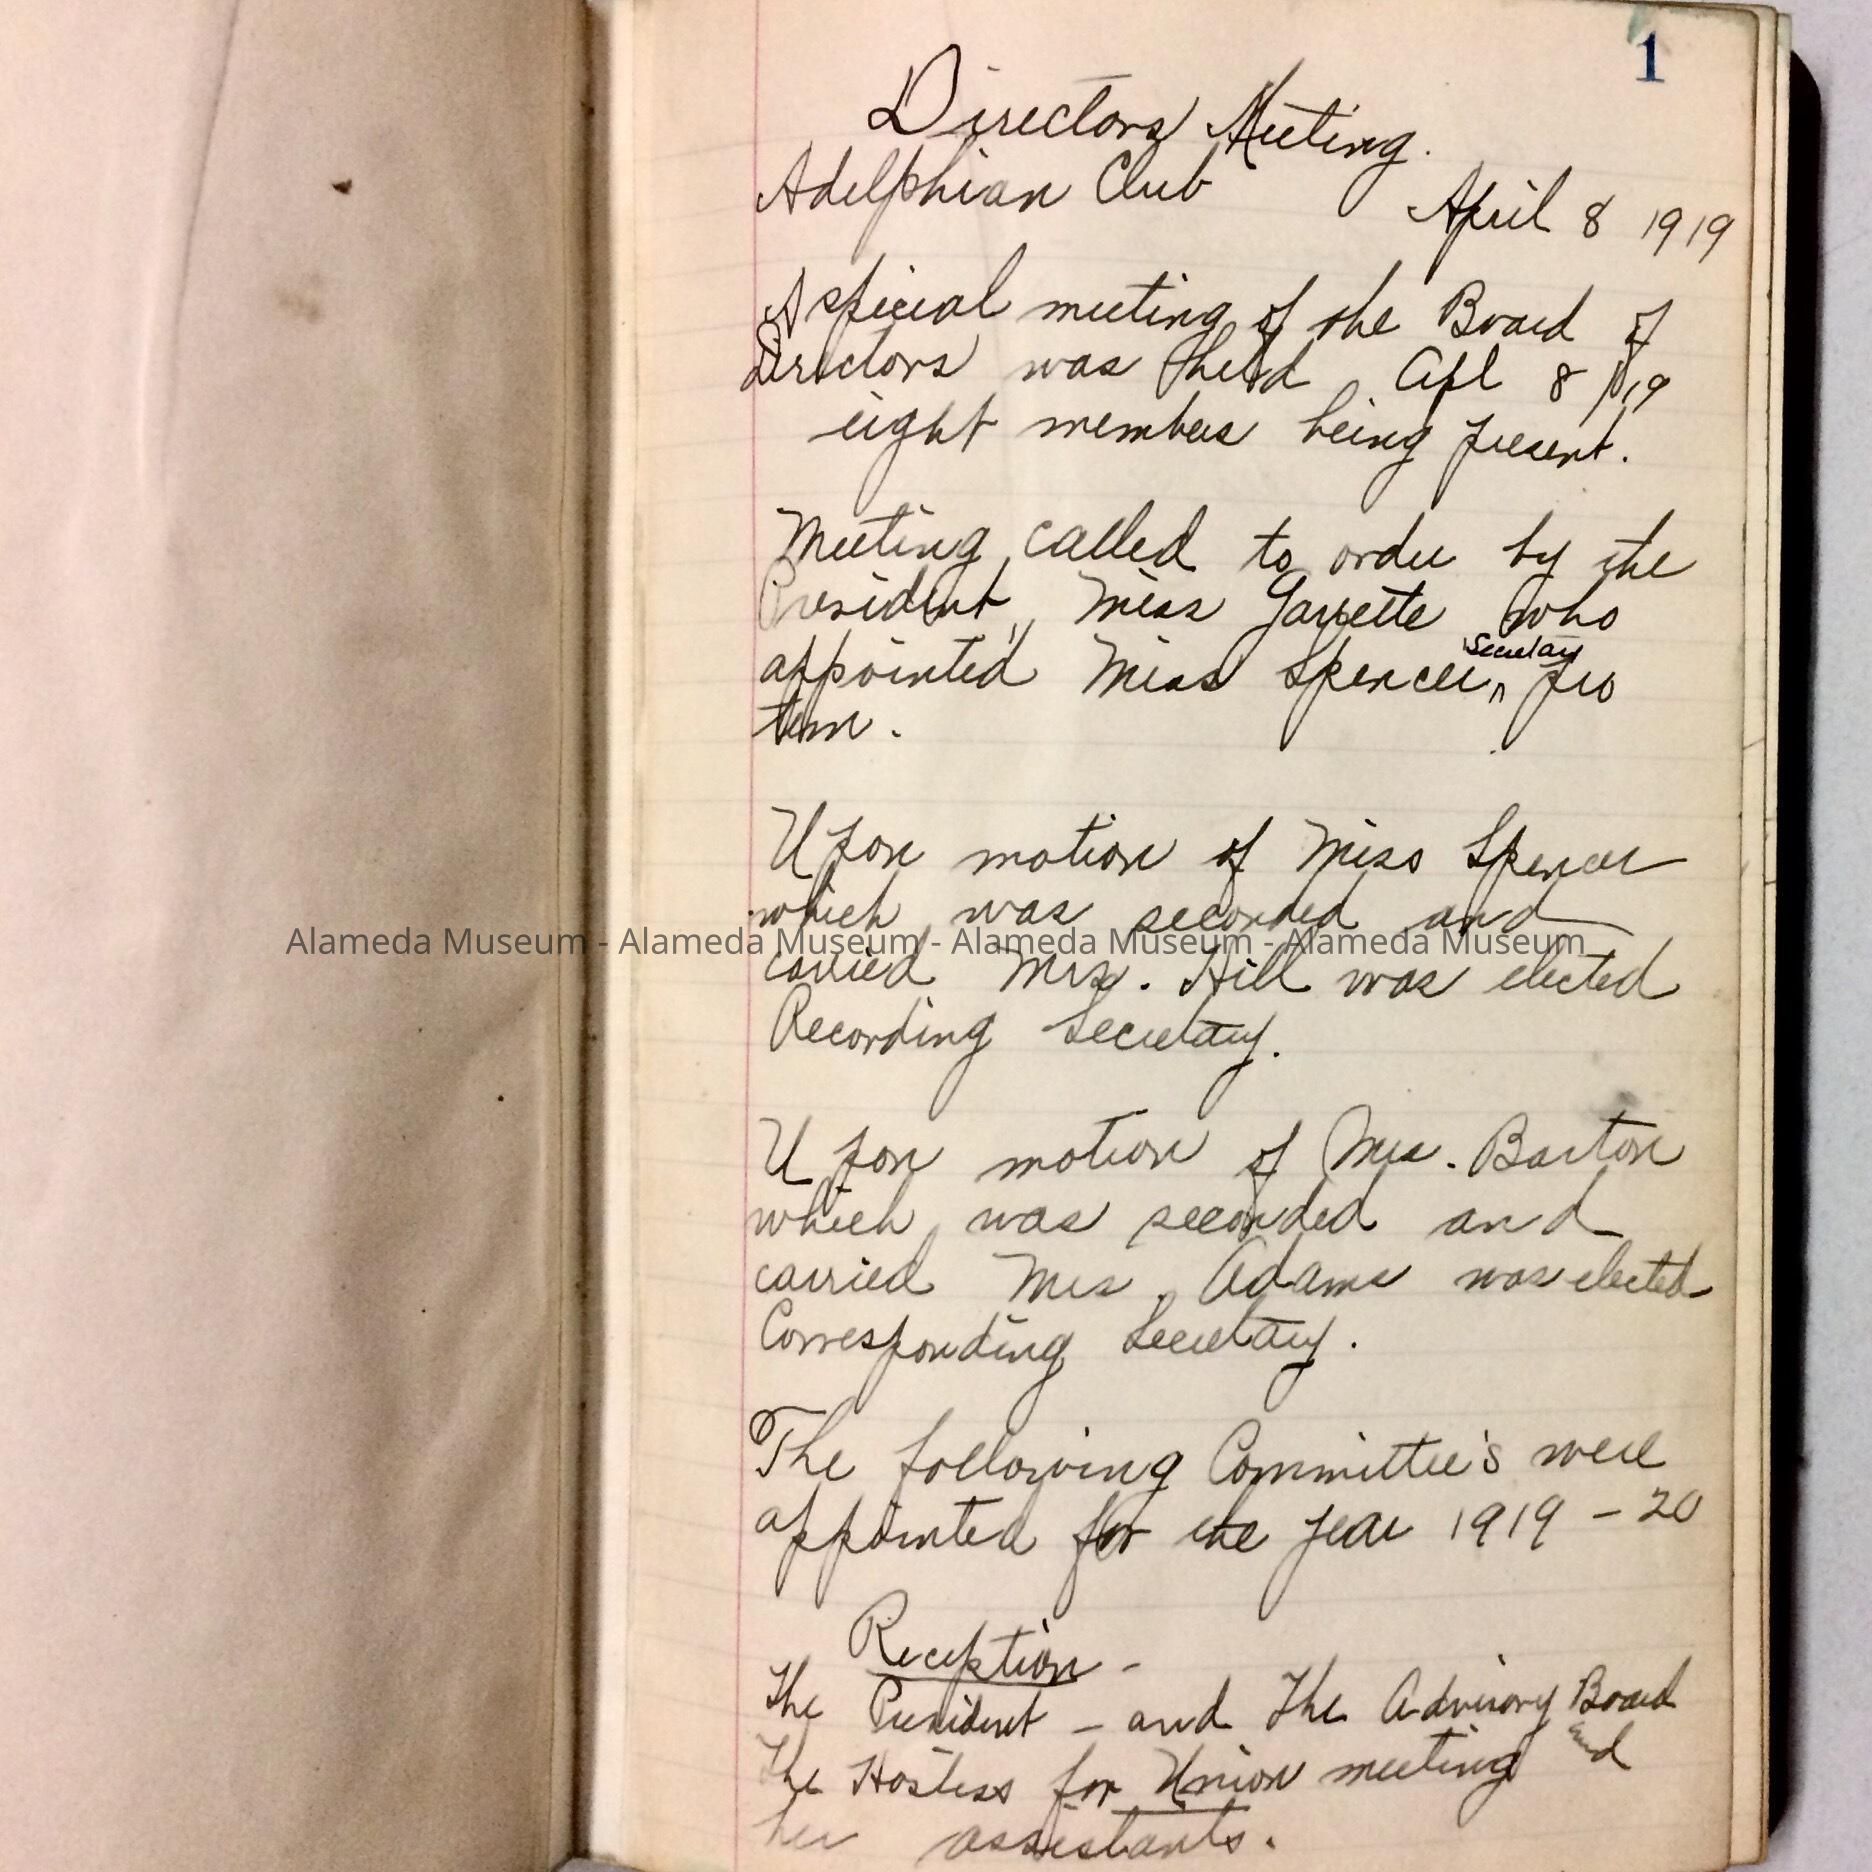 1
Directors Meeting.
Adelphian Club
April 8 1919
A special meeting of the Board of
Directors was held Apl 8 1919
eight members being present.
Meeting called to order by the
President, Miss Garrette who
Secretary
appointed Miss Spencer, pro
tem.
Upon motion of Miss Spencer
which was seconded and
Alameda Museum - Alameda Museum - Alameda Museum - Alameda Museum
carried Mrs. Hill was elected
Recording Secretary.
Upon motion of Mrs. Barton
which was seconded and
carried Mrs. Adams was elected
Corresponding Secretary.
The following Committee's were
appointed for the year 1919 - 20
Reception -
The President - and The Advisory Board
The Hostess for Union meeting and
her assistants.